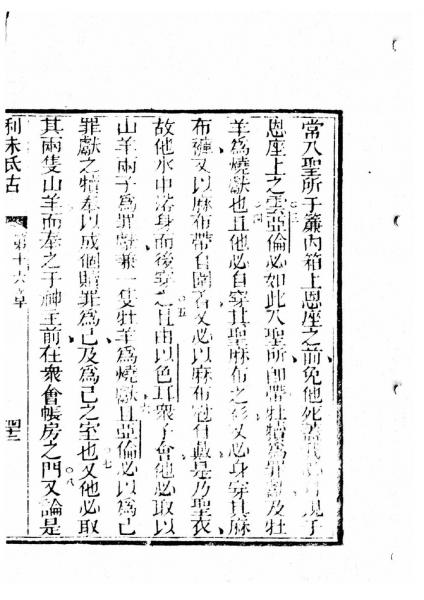 常入聖所于簾內箱上恩座之前免他死葢我必現于
恩座上之雲亞倫必如此入聖所卽帶牡犢為罪獻及牡
羊為燒獻也且他必自穿其聖麻布之衫又必身穿其麻
布褲又以麻布帶自圍着又必以麻布冠自戴是乃聖衣
故他水中洛身而後穿之且由以色耳衆子會他必取以
山羊兩子為罪獻兼一隻牡羊為燒獻且亞倫必以為己
罪獻之犢奉以成個贖罪為己及為己之室也又他必取
其兩隻山羊而奉之于神主前在衆會帳房之門又論是
利未氏古 第十六章